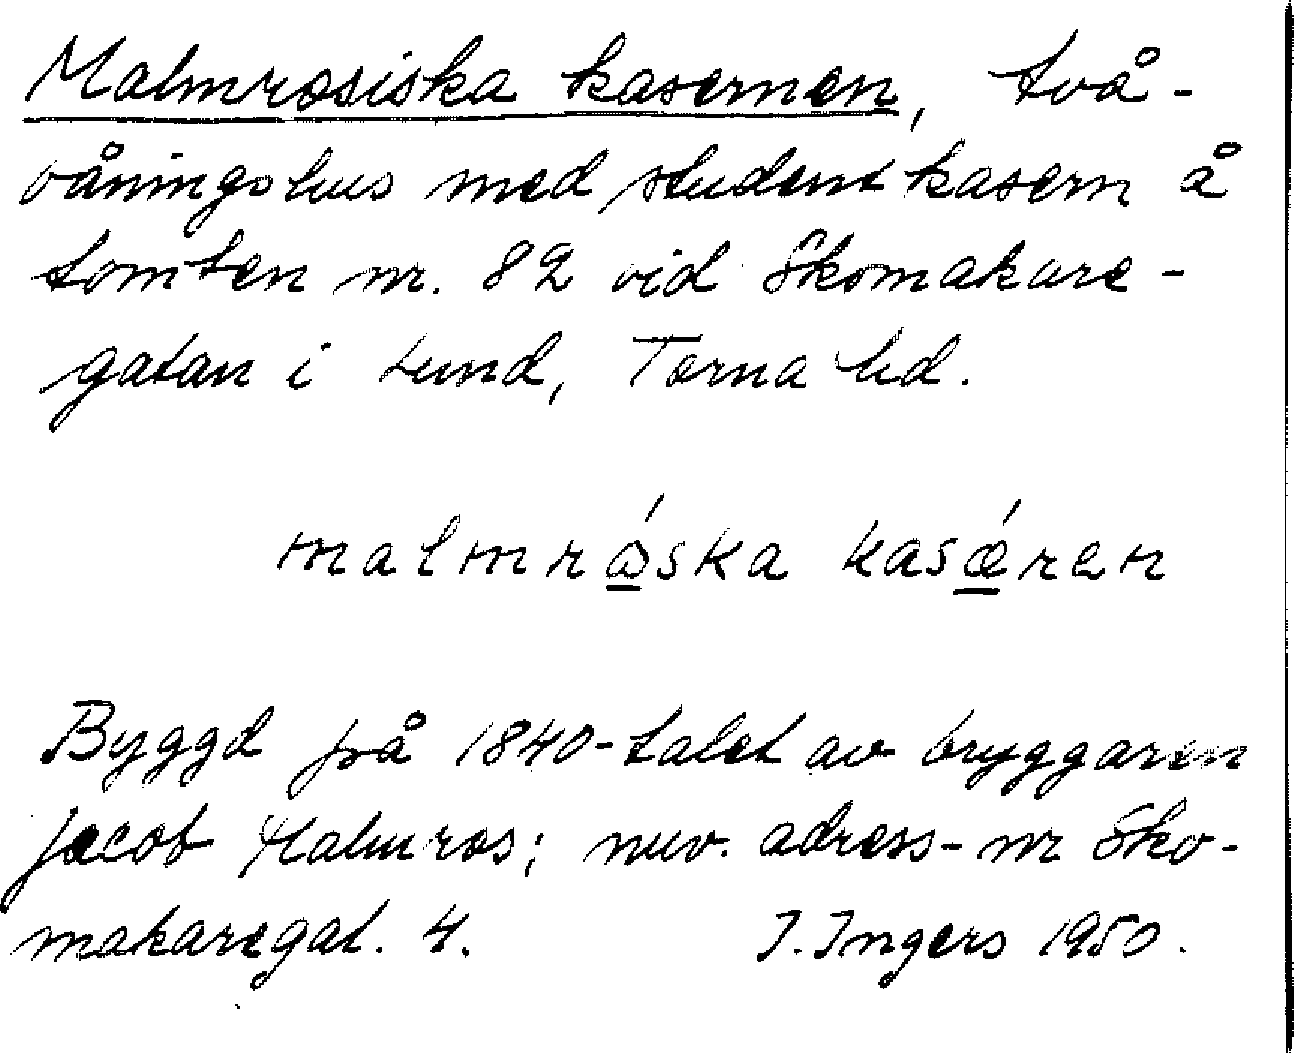 Malmrosiska kasernen, två-
våningshus med studentkasern å
tomten nr. 82 vid Skomakare-
gatan i Lund, Torna hd.
malmrǻska kasǽren
Byggd på 1840-talet av bryggaren
Jacob Malmros; nuv. adress-nr Sko-
makaregat. 4. I. Ingers 1950.